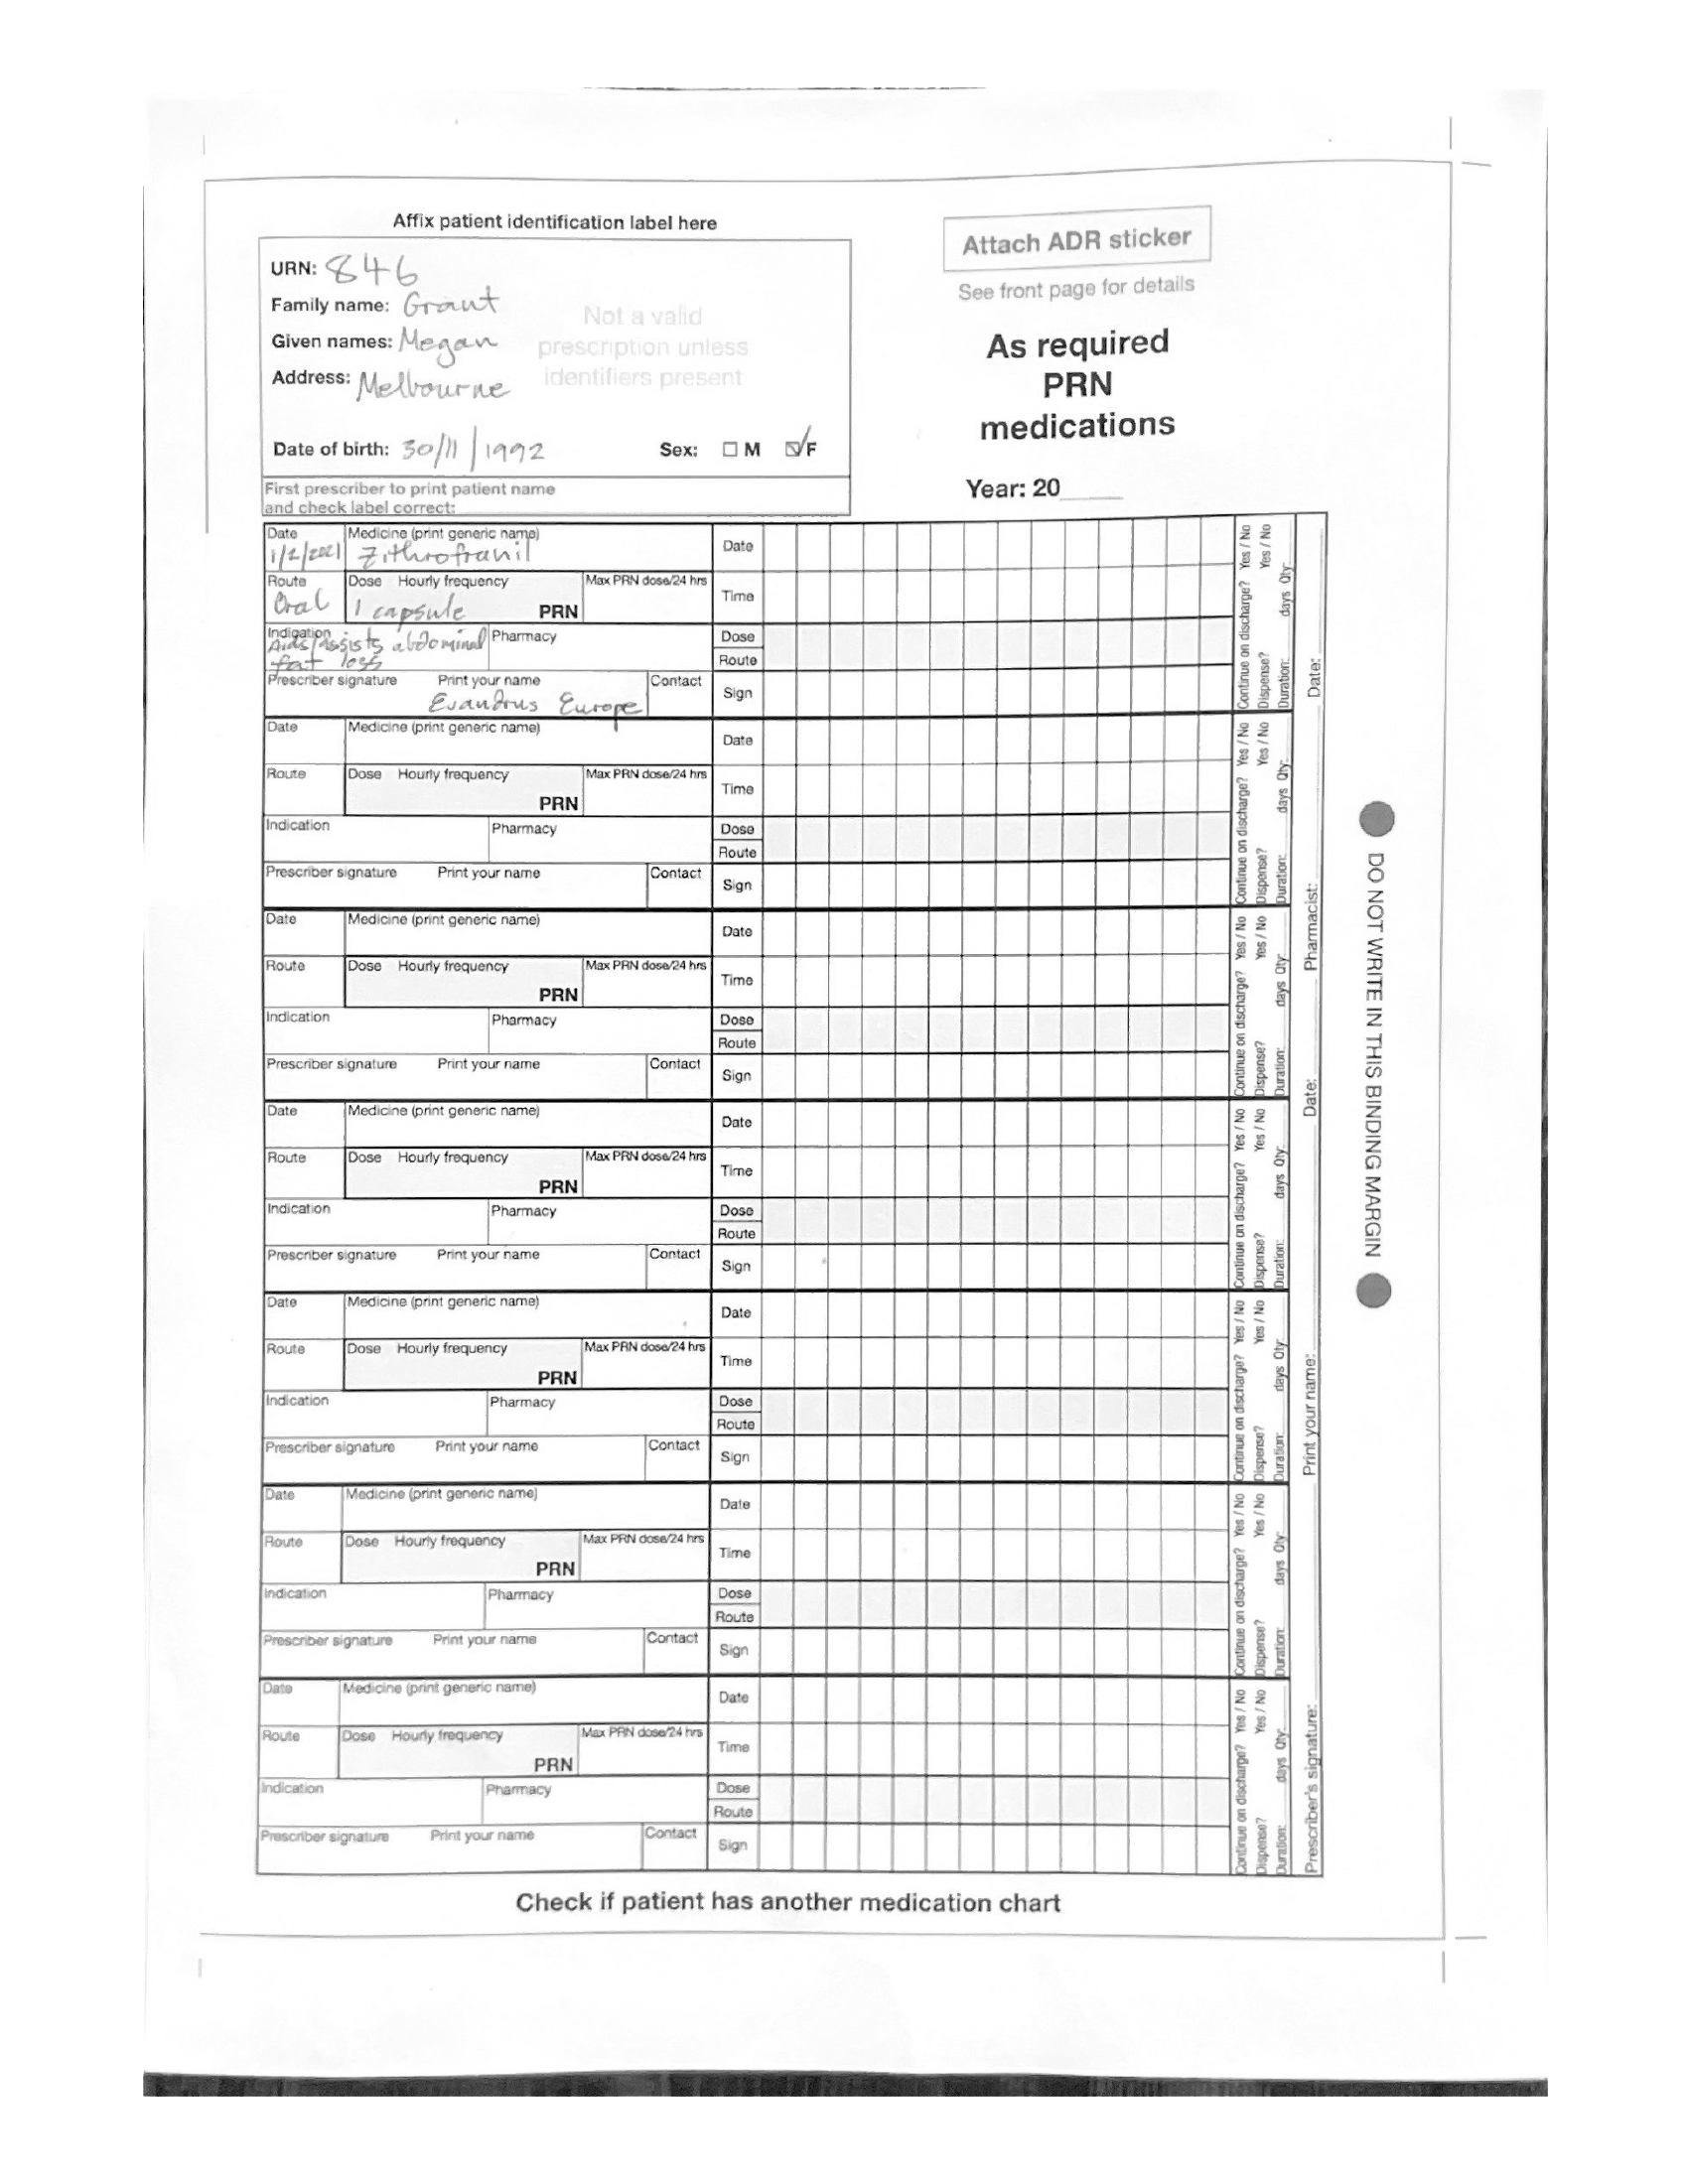 Affix patient identification label here
URN: 846
Family name: Grant
Given names: Megan
Address: Melbourne
Not a valid
prescription unless
identifiers present
Date of birth: 30/11/1992 Sex: M F
First prescriber to print patient name
and check label correct:
Attach ADR sticker
See front page for details
As required
PRN
medications
Year: 20
Date Medicine (print generic name) Date
1/2/2021 Zithrofranil
Route Dose Hourly frequency Max PRN dose/24 hrs Time
Oral 1 capsule PRN
Indication Pharmacy Dose
Aids/assists abdominal
fat loss Route
Prescriber signature Print your name Contact Sign
Evandrus Europe
Continue on discharge? Yes / No
Dispense? Yes / No
Duration: days Qty:
Date Medicine (print generic name) Date
Route Dose Hourly frequency Max PRN dose/24 hrs Time
PRN
Indication Pharmacy Dose
Route
Prescriber signature Print your name Contact Sign
Continue on discharge? Yes / No
Dispense? Yes / No
Duration: days Qty:
Date Medicine (print generic name) Date
Route Dose Hourly frequency Max PRN dose/24 hrs Time
PRN
Indication Pharmacy Dose
Route
Prescriber signature Print your name Contact Sign
Continue on discharge? Yes / No
Dispense? Yes / No
Duration: days Qty:
Date Medicine (print generic name) Date
Route Dose Hourly frequency Max PRN dose/24 hrs Time
PRN
Indication Pharmacy Dose
Route
Prescriber signature Print your name Contact Sign
Continue on discharge? Yes / No
Dispense? Yes / No
Duration: days Qty:
Date Medicine (print generic name) Date
Route Dose Hourly frequency Max PRN dose/24 hrs Time
PRN
Indication Pharmacy Dose
Route
Prescriber signature Print your name Contact Sign
Continue on discharge? Yes / No
Dispense? Yes / No
Duration: days Qty:
Date Medicine (print generic name) Date
Route Dose Hourly frequency Max PRN dose/24 hrs Time
PRN
Indication Pharmacy Dose
Route
Prescriber signature Print your name Contact Sign
Continue on discharge? Yes / No
Dispense? Yes / No
Duration: days Qty:
Date Medicine (print generic name) Date
Route Dose Hourly frequency Max PRN dose/24 hrs Time
PRN
Indication Pharmacy Dose
Route
Prescriber signature Print your name Contact Sign
Continue on discharge? Yes / No
Dispense? Yes / No
Duration: days Qty:
Prescriber's signature: Print your name: Date: Pharmacist: Date:
DO NOT WRITE IN THIS BINDING MARGIN
Check if patient has another medication chart